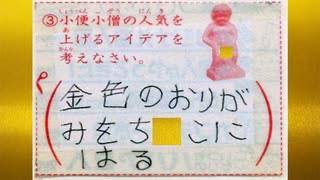 ③小便小僧の人気を
上げるアイデアを
考えなさい。
金色のおりが
みをち こに
はる